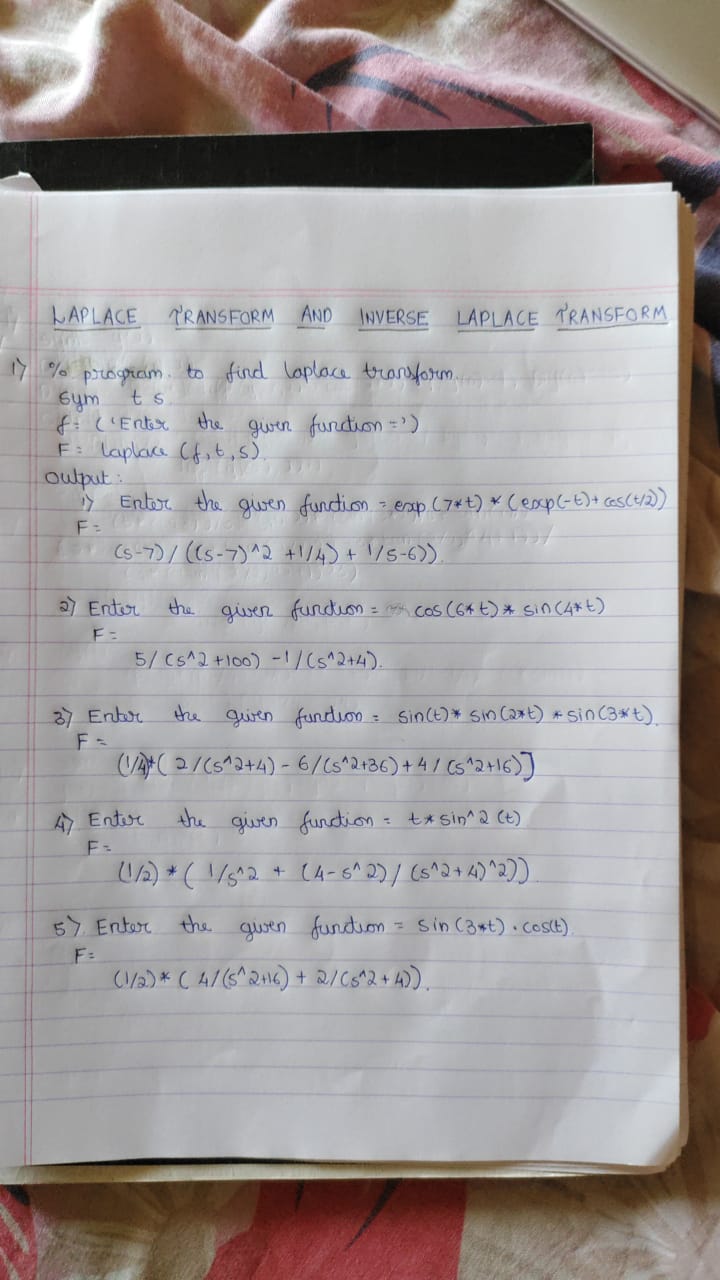 LAPLACE TRANSFORM AND INVERSE LAPLACE TRANSFORM
1) % program to find laplace transform.
Sym t s
f = ('Enter the given function =')
F = laplace (f,t,s)
Output:
1) Enter the given function = exp(7*t) * (exp(-t)+cos(t/2))
F =
(s-7)/((s-7)^2 +1/4) + 1/s-6)).
2) Enter the given function = cos(6*t)* sin(4*t)
F =
5/(s^2+100) -1/(s^2+4).
3) Enter the given function = sin(t)* sin(2*t) *sin(3*t).
F =
(1/4)*( 2/(s^2+4) - 6/(s^2+36)+4/(s^2+16)]
4) Enter the given function = t*sin^2 (t)
F =
(1/2) * ( 1/s^2 + (4-s^2)/(s^2+4)^2))
5) Enter the given function = sin(3*t).cos(t).
F =
(1/2)* ( 4/(s^2+16) + 2/(s^2+4)).